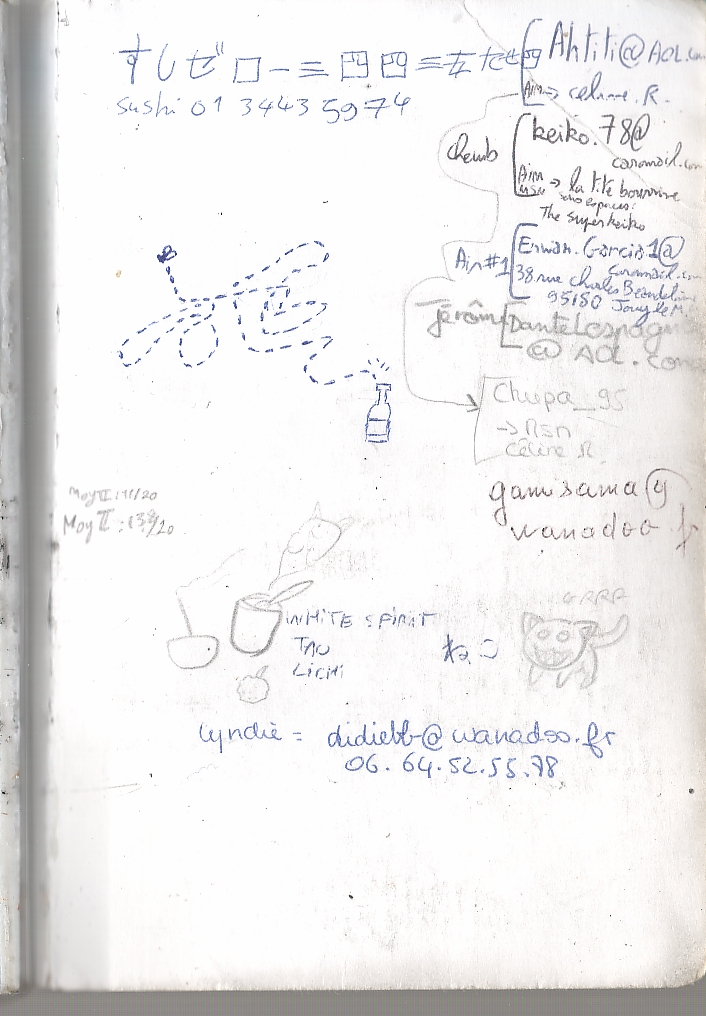 すしゼロ一三四四三五
sushi 01 3443 5974
Ahtiti@AOL.com
Aim → celine.R.
cherub
keiko.78@
caramail.com
Aim
MSN → la tite bourrine
sans espaces!
The superkeiko
Aim#1
Erwan.Garcia1@
Caramail.com
38 rue Charles
95180 Jouy le M.
Jérôme
DanteLespagn
@ AOL.com
Chupa_95
→ Msn
Céline R.
gamisama@
wanadoo.fr
Moy II
Moy II :
/20
GRRR
WHITE SPIRIT
TAO
LICHI
Lyndie = didiebb@wanadoo.fr
06.64.52.55.78